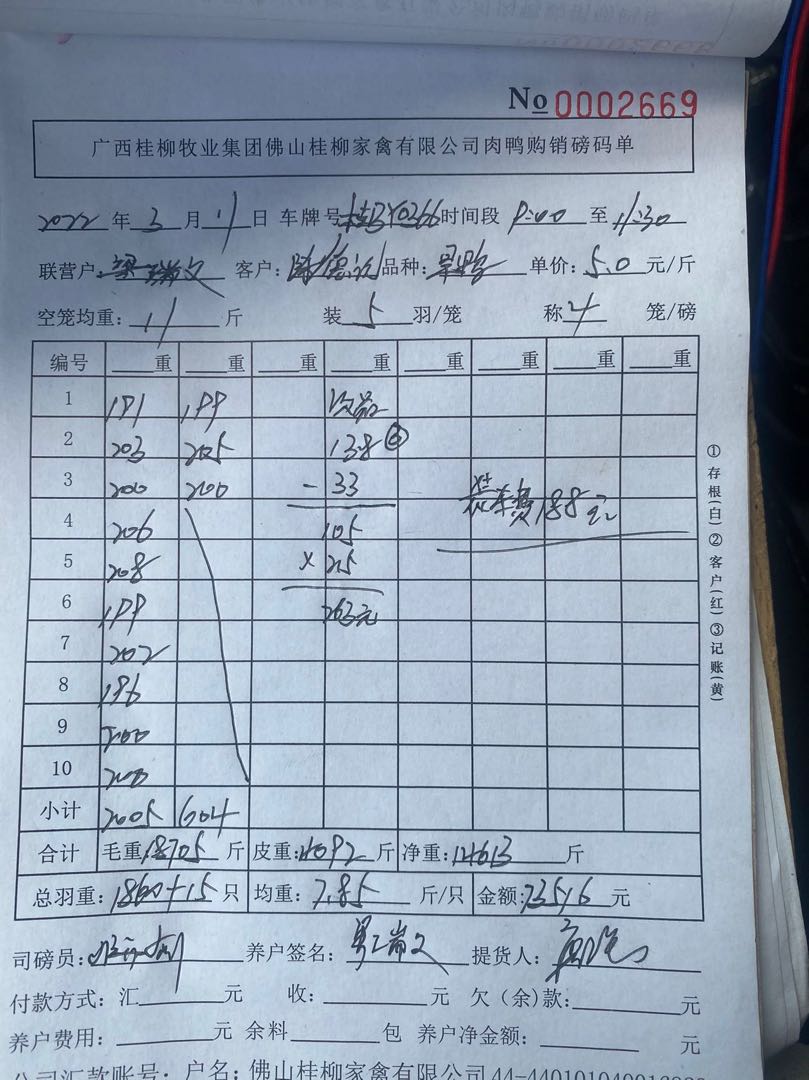 No 0002669
广西桂柳牧业集团佛山桂柳家禽有限公司肉鸭购销磅码单
2022 年 3 月 11 日 车牌号 桂 Y0366 时间段 9:00 至 11:30
联营户: 瑞文 客户: 陈 品种: 单价: 5.0 元/斤
空笼均重: 11 斤 装 5 羽/笼 称 4 笼/磅
编号 重 重 重 重 重 重 重 重
1 191 199 次品
2 203 205 138 ③
3 200 200 -33 装车费188元
4 206 105
5 208 ×2.5
6 199 263元
7 202
8 196
9 200
10 200
小计 2005 604
合计 毛重: 18705 斤 皮重: 4092 斤 净重: 14613 斤
总羽重: 1860+15 只 均重: 7.85 斤/只 金额: 73516 元
司磅员: 养户签名: 瑞文 提货人:
付款方式: 汇 元 收: 元 欠(余)款: 元
养户费用: 元 余料 包 养户净金额: 元
公司汇款账号: 户名: 佛山桂柳家禽有限公司44-440101040016
①存根(白)②客户(红)③记账(黄)